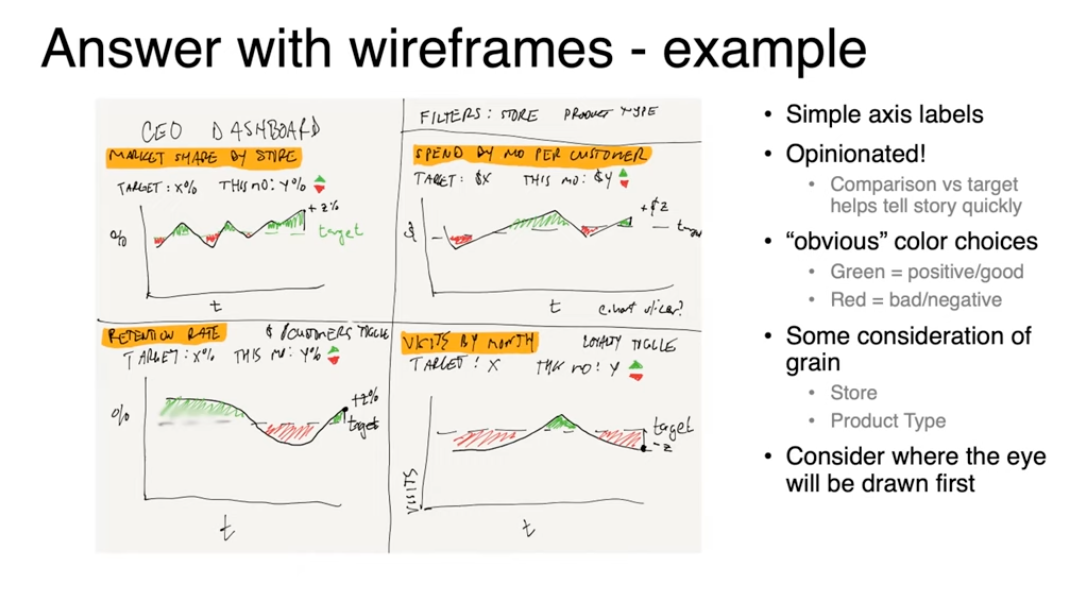 Answer with wireframes - example
CEO DASHBOARD
FILTERS: STORE PRODUCT TYPE
MARKET SHARE BY STORE
TARGET: X% THIS MO: Y%
+ Z%
target
%
t
SPEND BY MO PER CUSTOMER
TARGET: $X THIS MO: $Y
+$Z
$
t
RETENTION RATE
$ / CUSTOMERS TOGGLE
TARGET: X% THIS MO: Y%
+Z%
target
%
t
VISITS BY MONTH
LOYALTY TOGGLE
TARGET: X THIS MO: Y
target
-Z
VISITS
t
• Simple axis labels
• Opinionated!
• Comparison vs target
helps tell story quickly
• “obvious” color choices
• Green = positive/good
• Red = bad/negative
• Some consideration of
grain
• Store
• Product Type
• Consider where the eye
will be drawn first